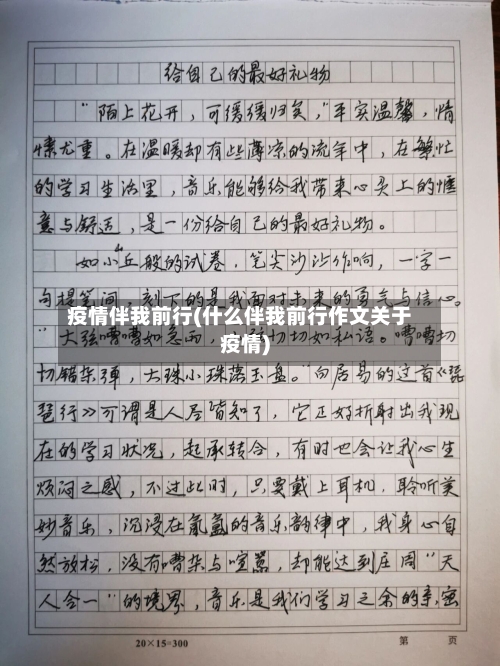 给自己的最好礼物
“陌上花开，可缓缓归矣，”平实温馨，情
愫尤重。在温暖却有些薄凉的流年中，在繁忙
的学习生活里，音乐能够给我带来心灵上的惬
意与舒适，是一份给自己的最好礼物。
如小丘般的试卷，笔尖沙沙作响，一字一
句提笔间，刻下的是我面对未来的勇气与信心。
疫情伴我前行(什么伴我前行作文关于
疫情)
“大弦嘈嘈如急雨，切切如私语。嘈嘈切
切错杂弹，大珠小珠落玉盘。”白居易的这首《琵
琶行》可谓是人尽皆知了，它正好折射出我现
在的学习状况，起承转合，有时也会让我心生
烦闷之感，不过此时，只要戴上耳机，聆听美
妙音乐，沉浸在氤氲的音乐韵律中，我身心自
然放松，没有嘈杂与喧嚣，却能达到庄周“天
人合一”的境界，音乐是我们学习之余的亲密
20×15=300
第 页